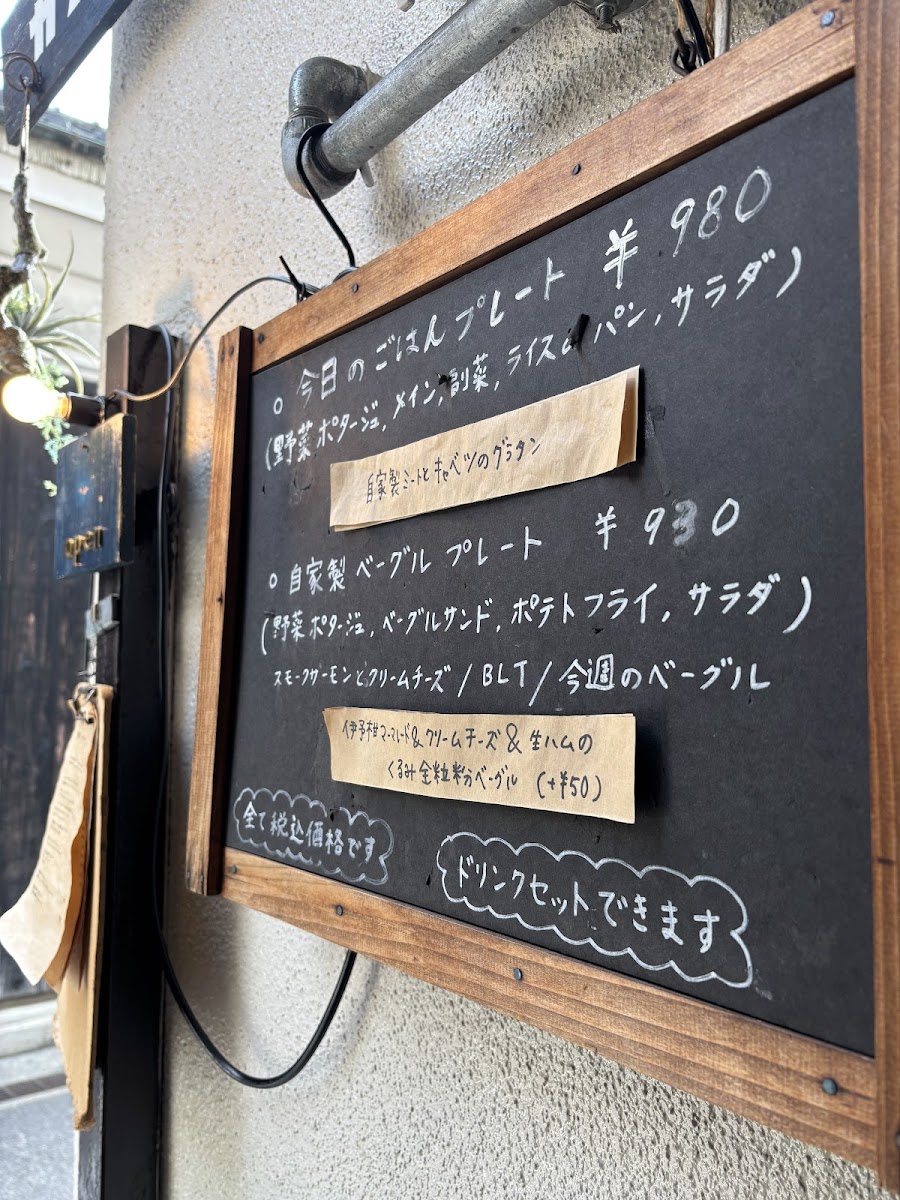 カフ
open
○ 今日のごはんプレート ¥980
(野菜ポタージュ, メイン, 副菜, ライスorパン, サラダ)
自家製ミートとキャベツのグラタン
○ 自家製ベーグルプレート ¥930
(野菜ポタージュ, ベーグルサンド, ポテトフライ, サラダ)
スモークサーモンとクリームチーズ / BLT / 今週のベーグル
伊予柑マーマレード&クリームチーズ&生ハムの
くるみ全粒粉ベーグル (+¥50)
全て税込価格です
ドリンクセットできます